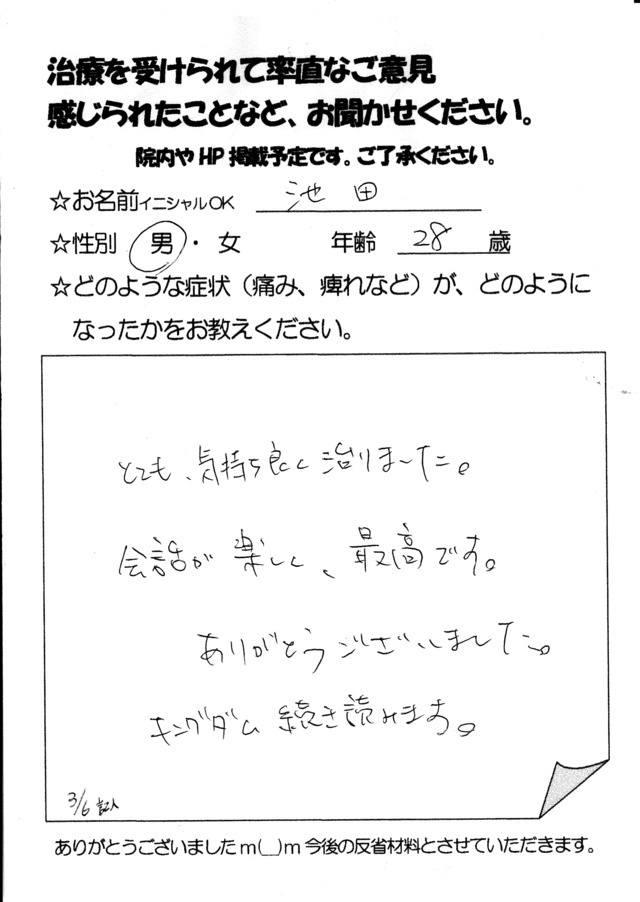 治療を受けられて率直なご意見
感じられたことなど、お聞かせください。
院内やHP掲載予定です。ご了承ください。
☆お名前イニシャルOK 池田
☆性別 男・女 年齢 28 歳
☆どのような症状（痛み、痺れなど）が、どのように
なったかをお教えください。
とても、気持ち良く治りました。
会話が楽しく、最高です。
ありがとうございました。
キングダム続き読みます。
3/6 記入
ありがとうございましたm(__)m今後の反省材料とさせていただきます。